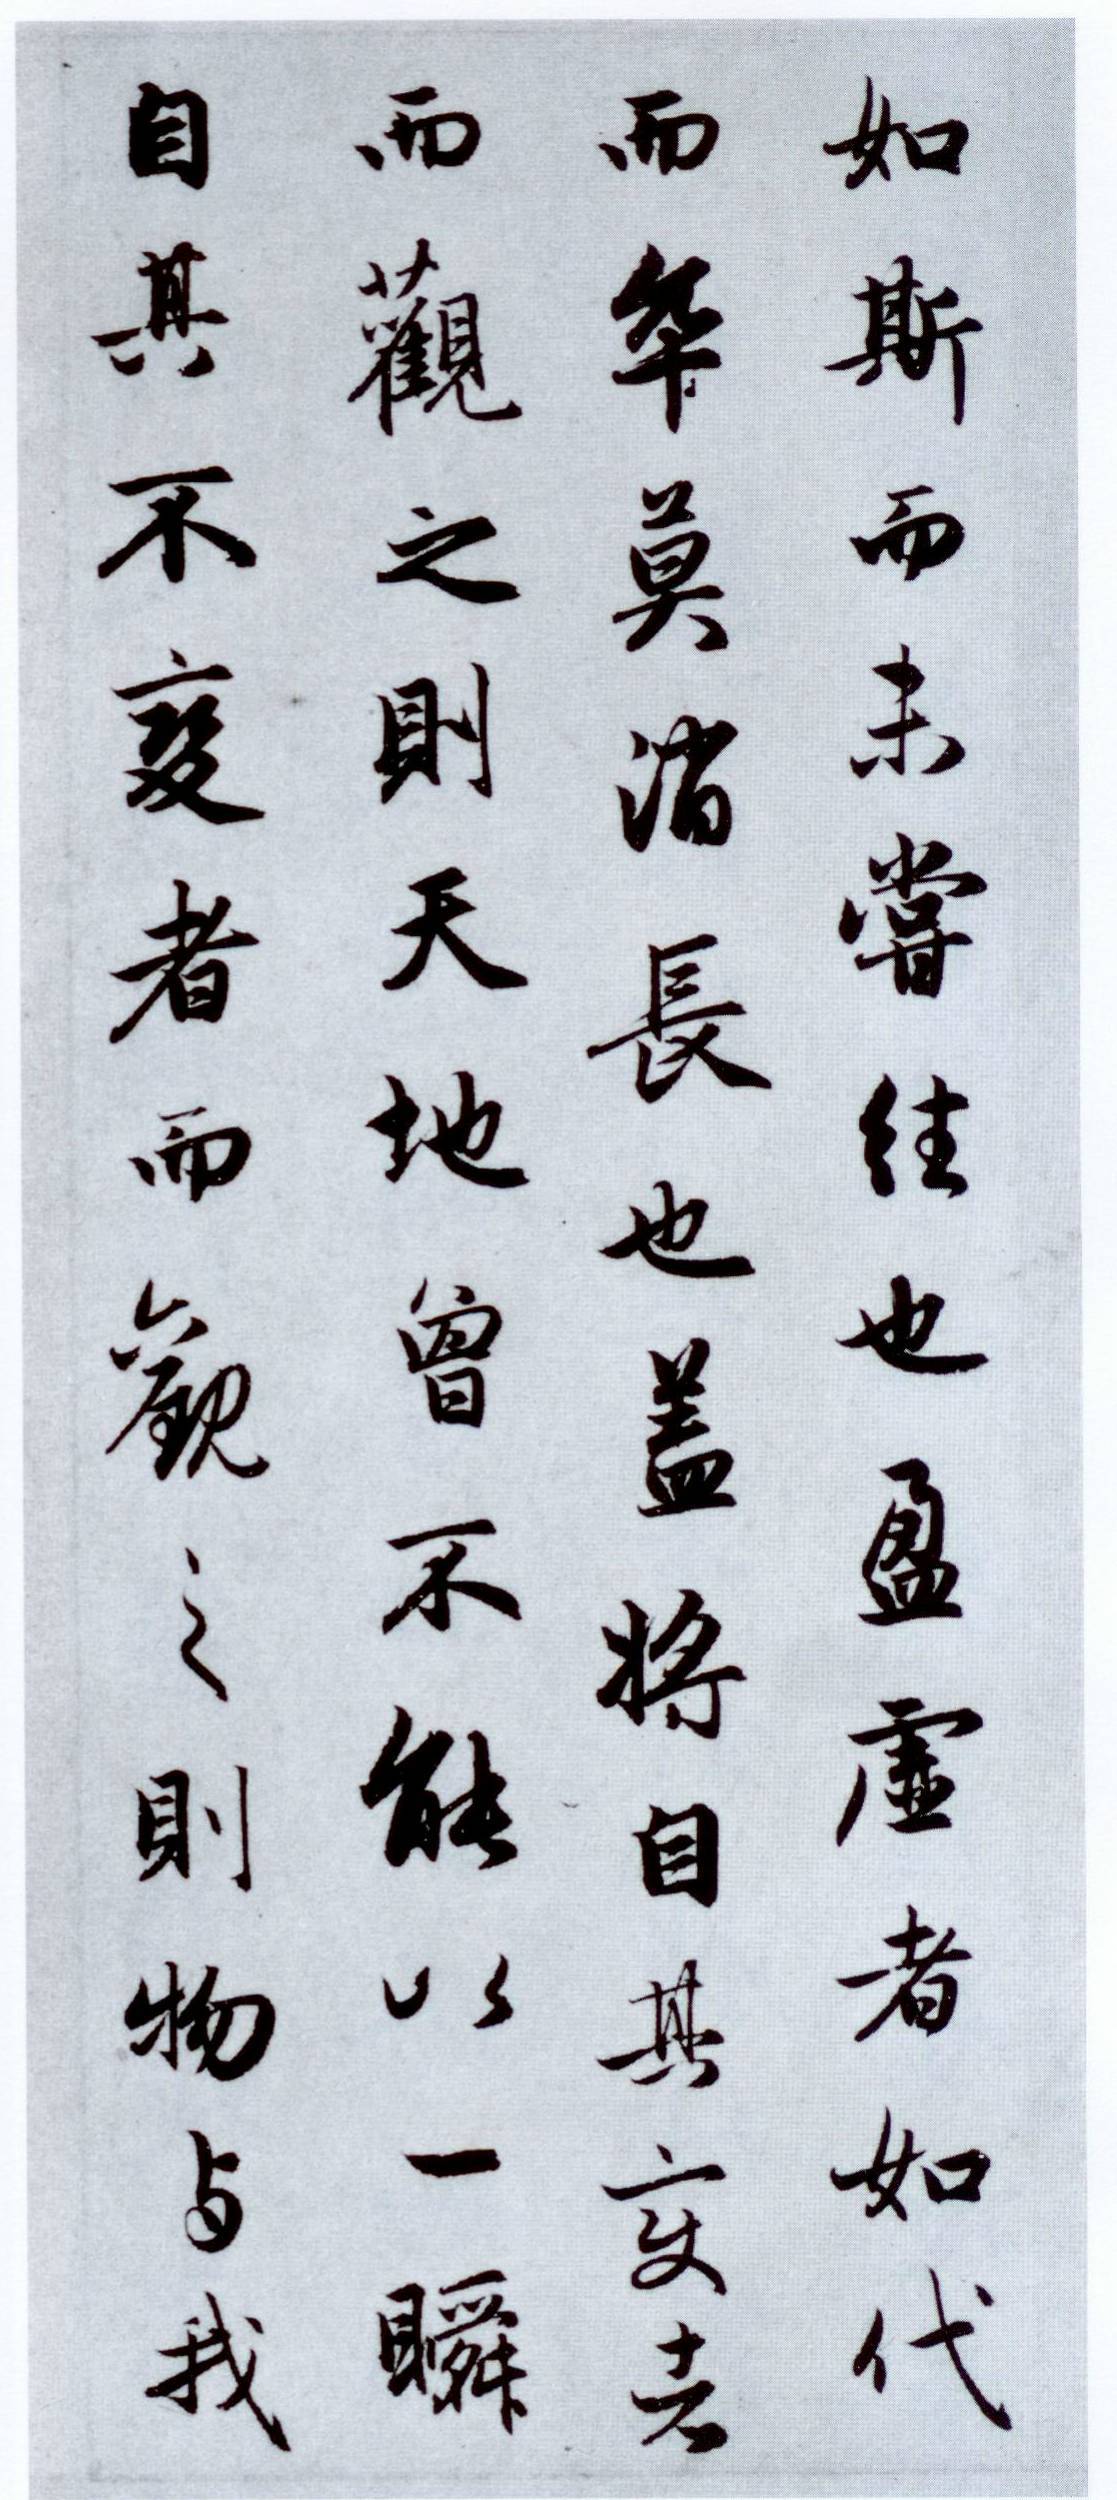 如斯而未嘗往也盈虛者如代
而卒莫消長也蓋將自其變者
而觀之則天地曾不能以一瞬
自其不變者而觀之則物与我